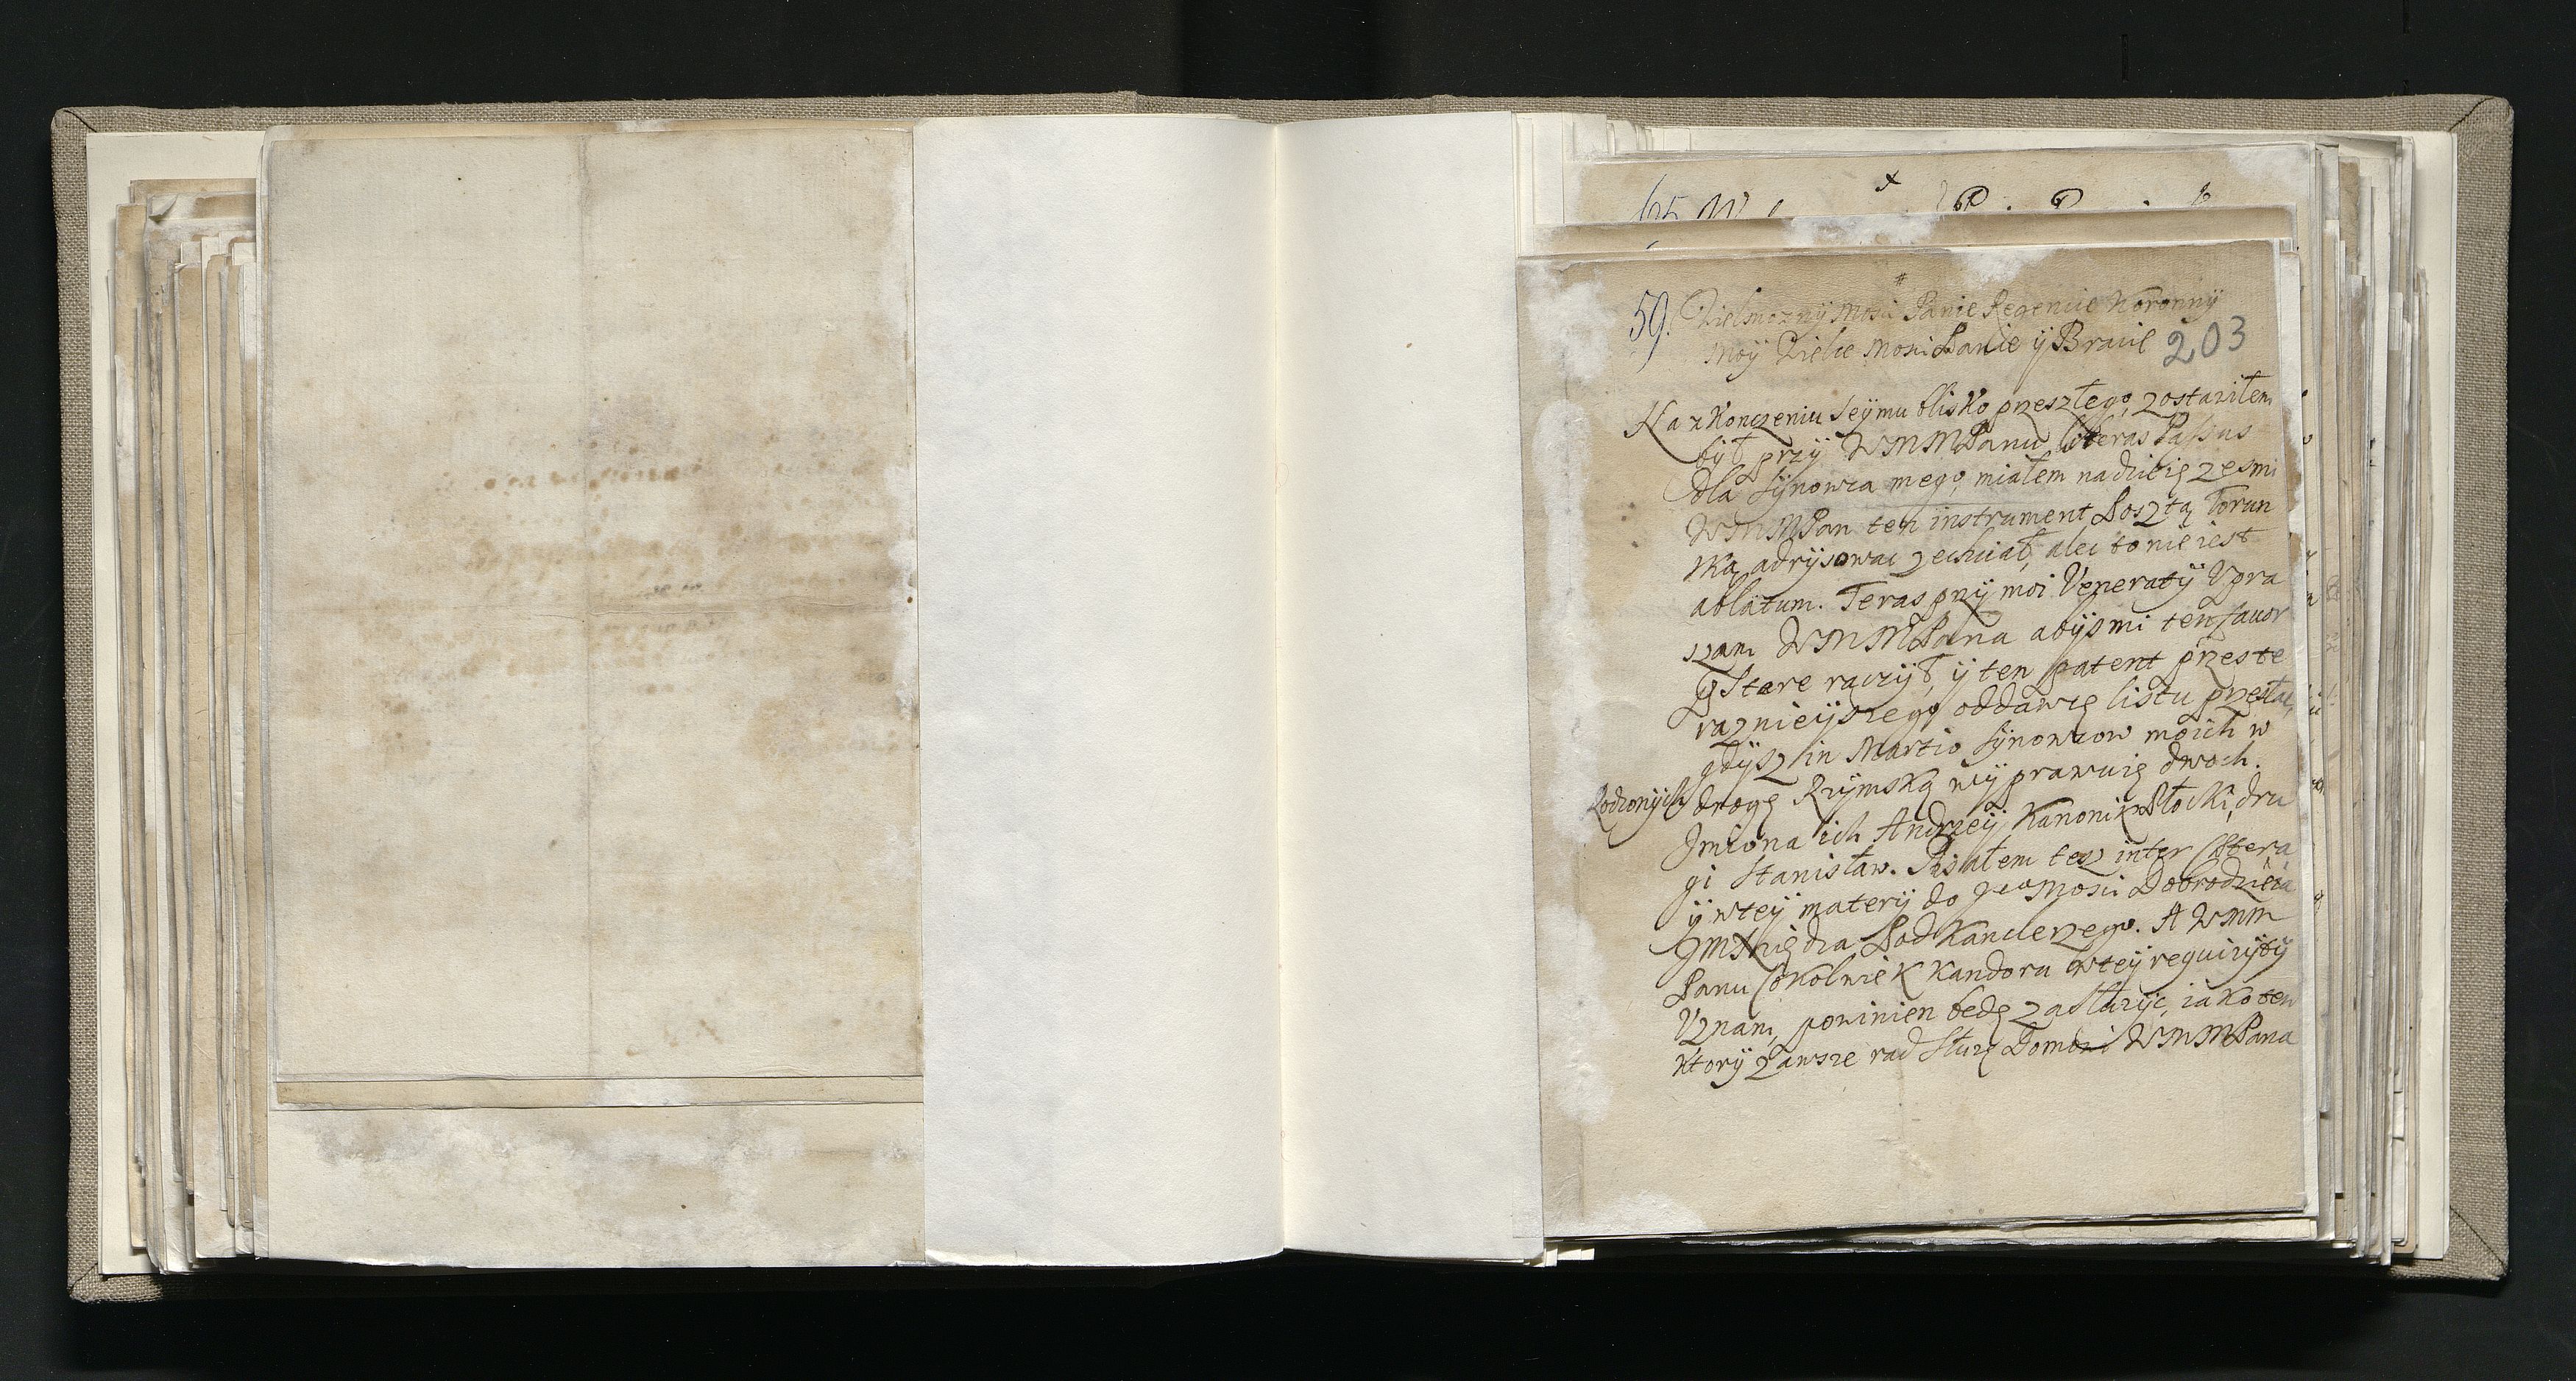 59.
203
Wielmozny Mosci Panie Regencie Koronny
Moÿ Wielce Mosci Panie ÿ Bracie
Na zKonczeniu Seÿmu blisko przeszłego, zostawiłem
bÿł przÿ WMMPanu literas Passus
dla Sÿnowca mego, miałem nadzieię zesmi
WMMPan ten instrument Posztą Torun
ską adrÿsowac zechciał, alec to nie iest
ablatum. Teras przÿ moi Veneratÿ Vpra
szam WMMPana abÿs mi ten fauor
raczÿł, ÿ ten patent przes te
raznieÿszego oddawcę listu przesłac,
gdÿsz in Martio Sÿnowcow moich w
Rodzonÿch drogę Rzÿmską wÿprawuię dwoch.
Imiona ich Andrzeÿ Kanonik Płocki, dru
gi Stanisław. Pisałem tesz inter cætera
ÿ wteÿ materÿ do Jeo Mosci Dobrodzieia
JmXiędza PodKanclerzego. A WMM
Panu CoKolwieK Kandoru wteÿ requizÿtÿ
Vznam, powinien będę zasłuzÿc, iako ten
Ktorÿ zawsze rad słuzę Domowi WMMPana